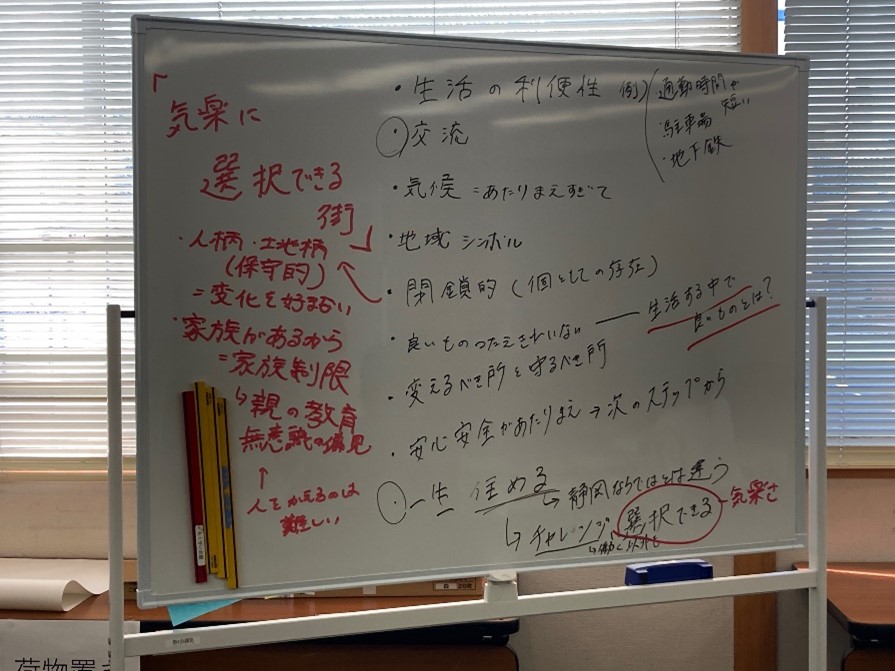 「気楽に
選択できる
街」
・人柄・土地柄
(保守的)
=変化を好まない
・家族があるから
=家族制限
↳親の教育
無意識の偏見
↑
人をかえるのは
難しい
・生活の利便性 例)
通勤時間が
短い
駐車場
・地下鉄
・交流
・気候 =あたりまえすぎて
・地域シンボル
・閉鎖的(個としての存在)
・良いものつたえきれいない ― 生活する中で
良いものとは?
・変えるべき所と守るべき所
・安心安全があたりまえ⇒次のステップから
・一生住める
↳静岡ならではとは違う
↳チャレンジ 選択できる ―気楽さ
↳働く以外も
荷物置き